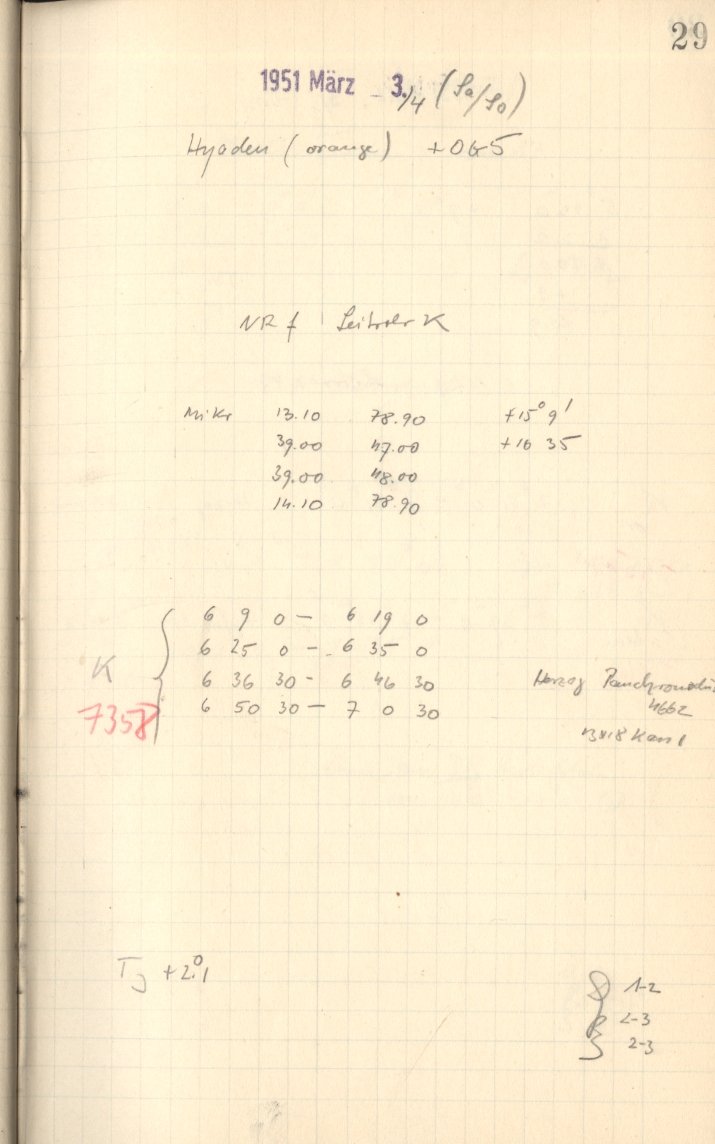 29
1951 März 3./4 (Sa/So)
Hyaden (orange) + OG5
NR f Leitrohr K
Mikr 13.10 78.90 +15° 9'
39.00 47.00 +16 35
39.00 48.00
14.10 78.90
6 9 0 — 6 19 0
6 25 0 - 6 35 0
K 6 36 30 - 6 46 30 Herzog
7358 6 50 30 — 7 0 30 4662
13x18
+2.°1
1-2
2-3
2-3